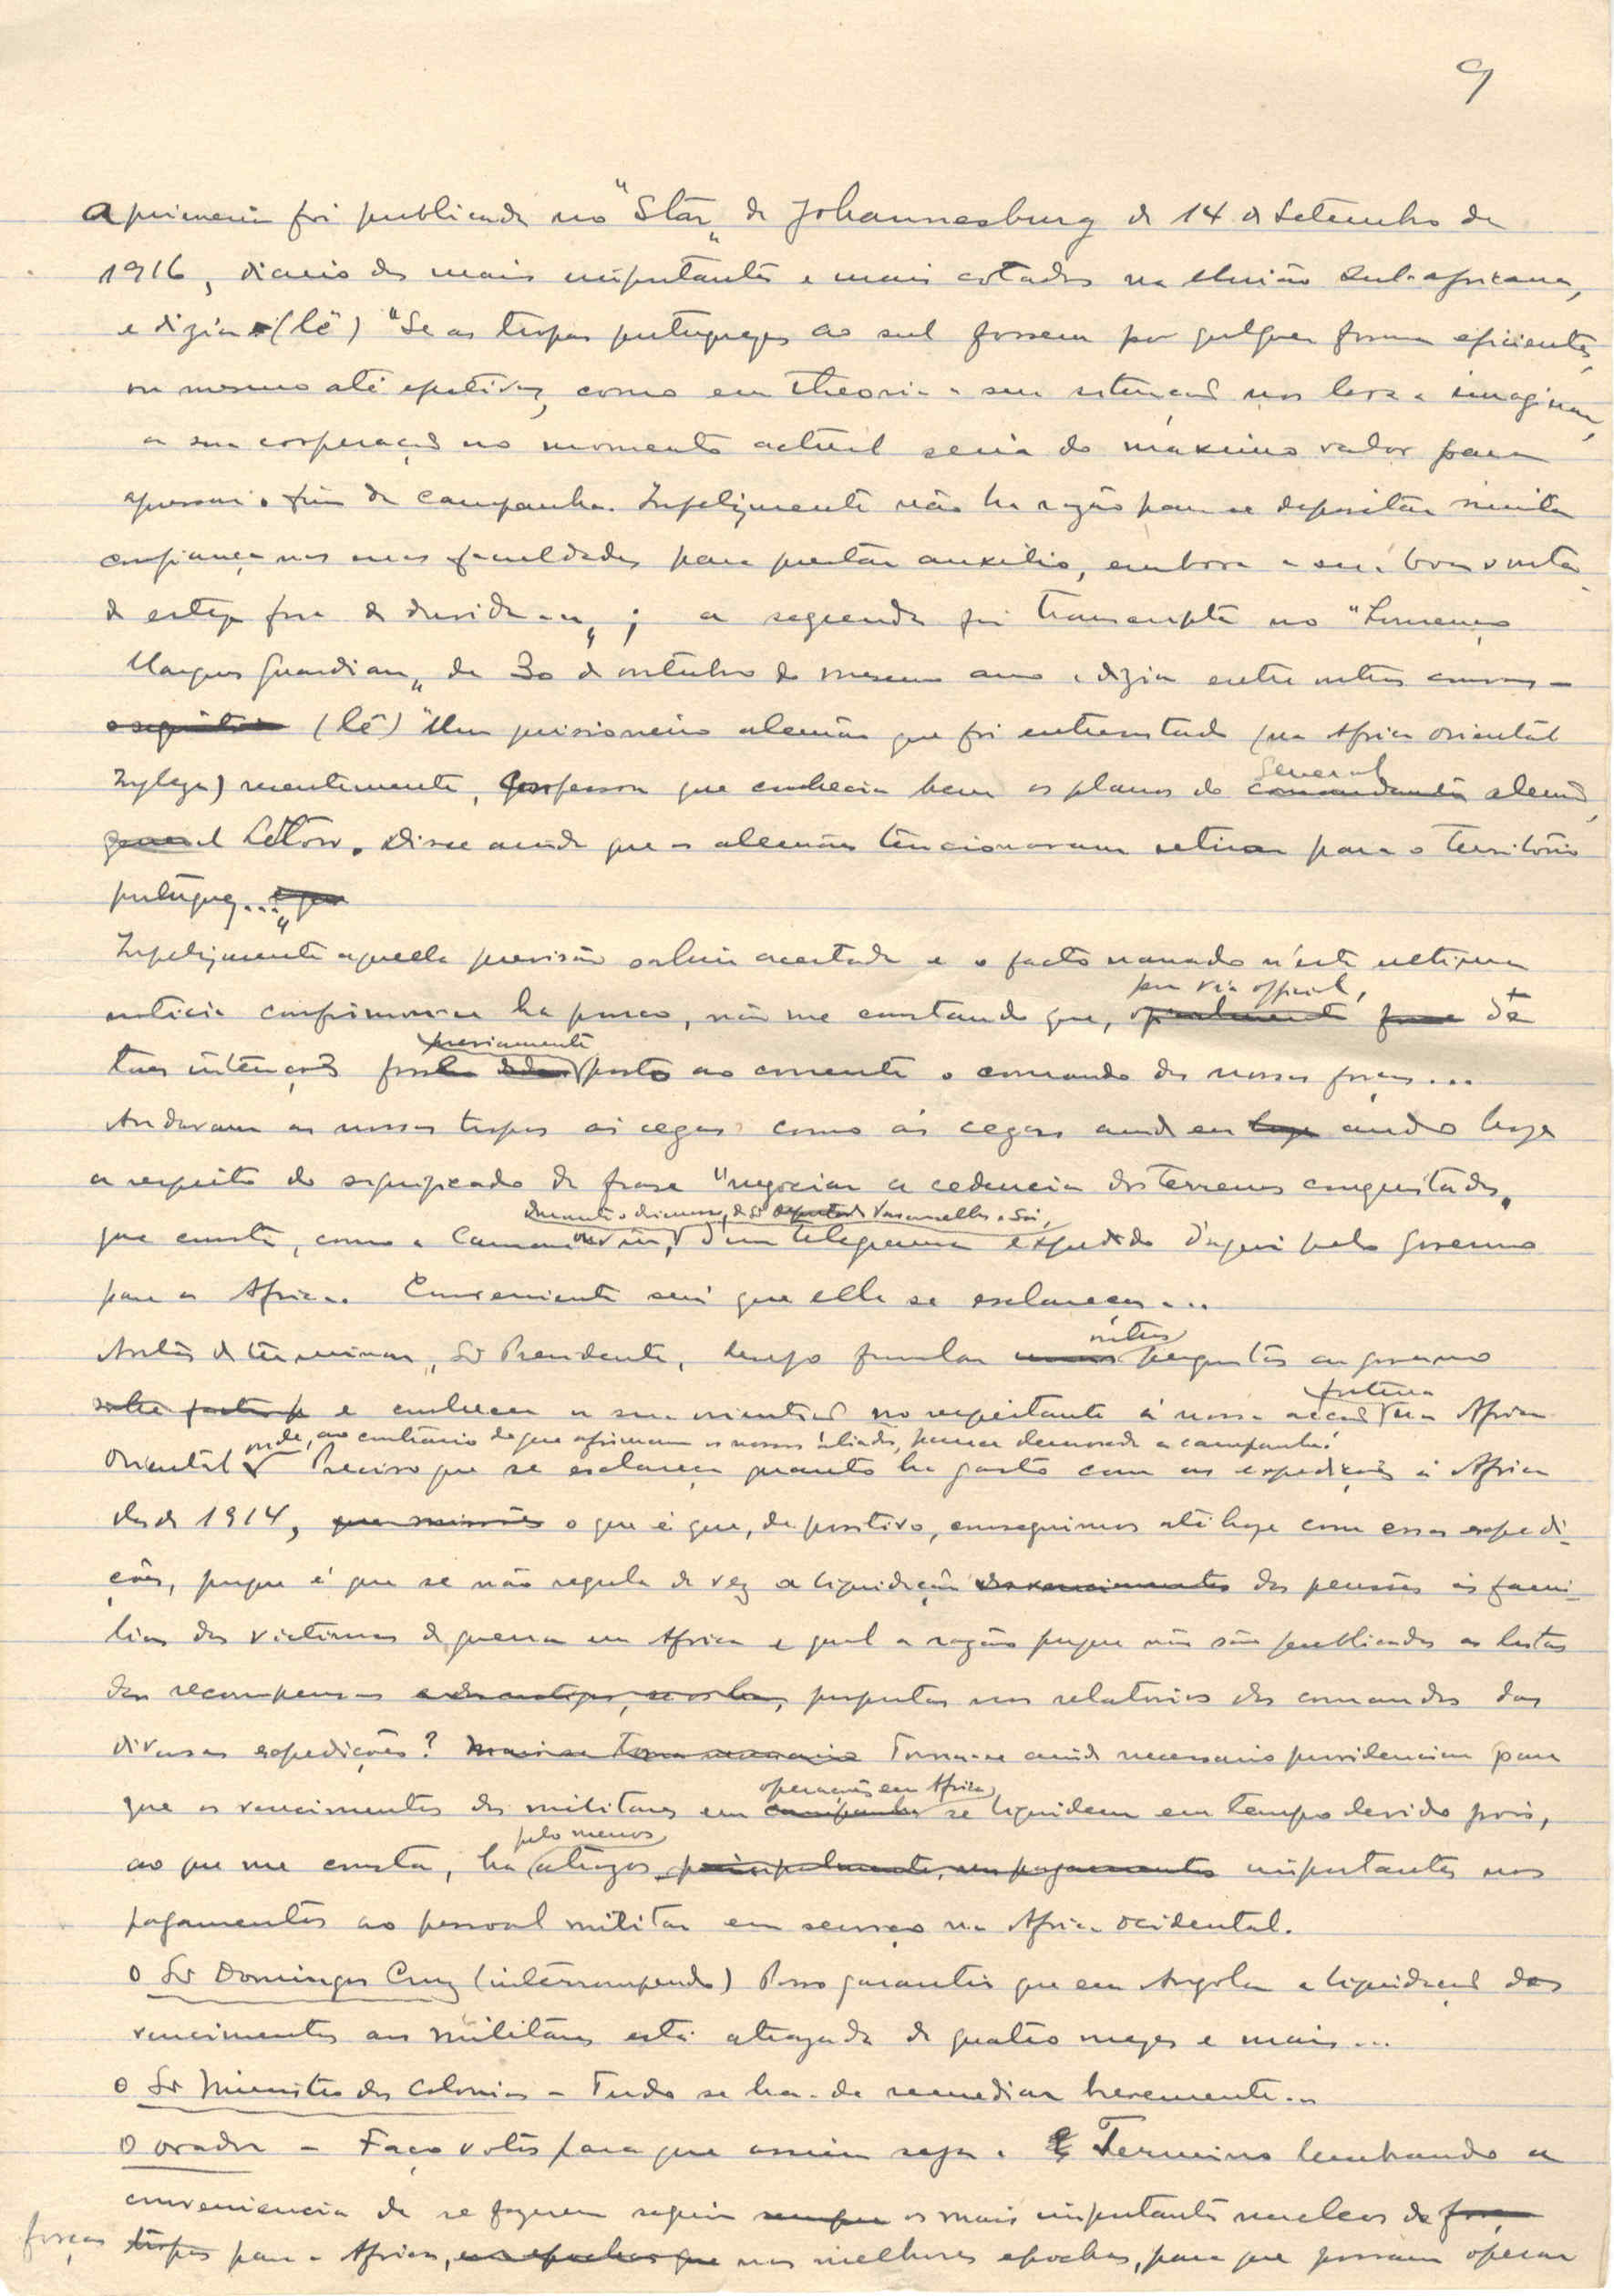 9
A primeira foi publicada no "Star" de Johannesburg de 14 de Setembro de
1916, diario dos mais importantes e mais cotados na União Sul-africana,
e dizia (lê) "Se as tropas portuguezas ao sul fossem por qualquer forma eficientes,
ou mesmo até efectivas, como em theoria a sua situação nos leva a imaginar,
a sua cooperação no momento actual seria do maximo valor para
apressar o fim da campanha. Infelizmente não ha razão para se depositar muita
confiança nas suas faculdades para prestar auxilio, embora a sua boa vonta-
de esteja fora de duvida..."; a segunda foi transcripta no "Lourenço
Marques Guardian" de 30 de outubro do mesmo ano e dizia entre outras cousas -
o seguinte (lê) "Um prisioneiro alemão que foi entrevistado (na Africa Oriental
Ingleza) recentemente, confessou que conhecia bem os planos do comandante general alemão,
general Lettow. Disse ainda que os alemães tencionavam retirar para o territorio
portuguez..."
Infelizmente aquella previsão sahiu acertada e o facto narrado n'esta ultima
noticia confirmou-se ha pouco, não me constando que, por via official, de
taes intenções fosse previamente posto ao corrente o comando das nossas forças...
Andaram as nossas tropas ás cegas como ás cegas ainda eu ando hoje
a respeito do significado da frase "negociar a cedencia dos terrenos conquistados"
que consta, como a Camara ouviu, durante o discurso, do Sr Deputado Vasconcellos e Sá, d'um telegrama expedido d'aqui pelo Governo
para a Africa. Conveniente será que elle se esclareça...
Antes de terminar, Sr Presidente, desejo formular varias perguntas ao governo
e conhecer a sua orientação no respeitante á nossa acção futura na Africa
Oriental onde, ao contrario do que afirmam os nossos aliados, parece demorada a campanha.
Preciso que se esclareça quanto ha gasto com as expedições á Africa
desde 1914, o que é que, de positivo, conseguimos até hoje com essas expedi-
ções, porque é que se não regula de vez a liquidação dos vencimentos das pensões ás fami-
lias das victimas da guerra em Africa e qual a razão porque não são publicadas as listas
das recompensas propostas nos relatorios dos comandos das
diversas expedições? Torna-se ainda necessario providenciar para
que os vencimentos dos militares em campanha operações em Africa se liquidem em tempo devido pois,
ao que me consta, ha pelo menos atrazos principalmente, nos pagamentos importantes nos
pagamentos ao pessoal militar em serviço na Africa Ocidental.
O Sr Domingos Cruz (interrompendo) Posso garantir que em Angola a liquidação dos
vencimentos aos militares está atrazada de quatro mezes e mais...
O Sr Ministro das Colonias - Tudo se ha-de remediar brevemente...
O orador - Faço votos para que assim seja. E Termino lembrando a
conveniencia de se fazerem seguir sempre os mais importantes nucleos de
forças tropas para a Africa, nas melhores epochas, para que possam operar